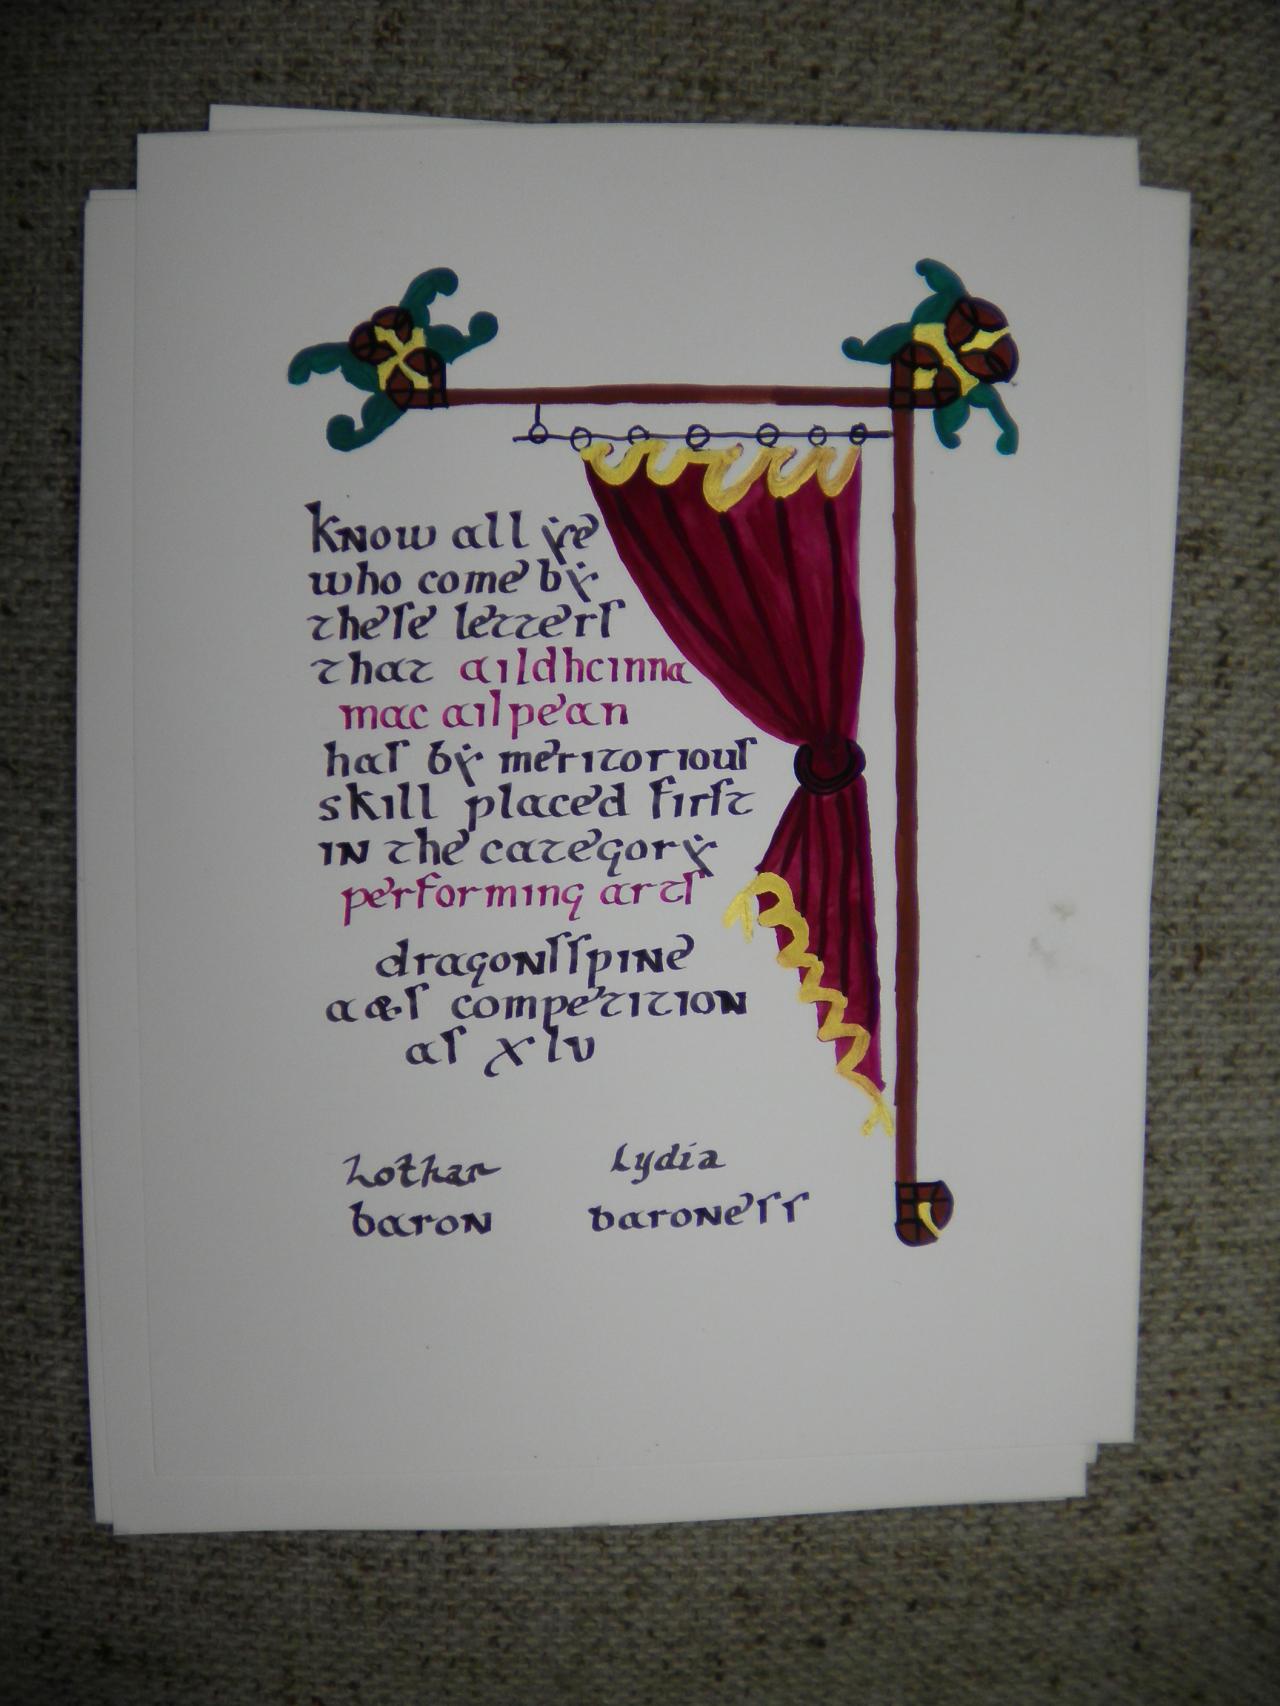 know all ye
who come by
these letters
that aildhcinna
mac ailpean
has by meritorious
skill placed first
in the category
performing arts
dragonsspine
a&s competition
as xlv
Lothar Lydia
baron baroness